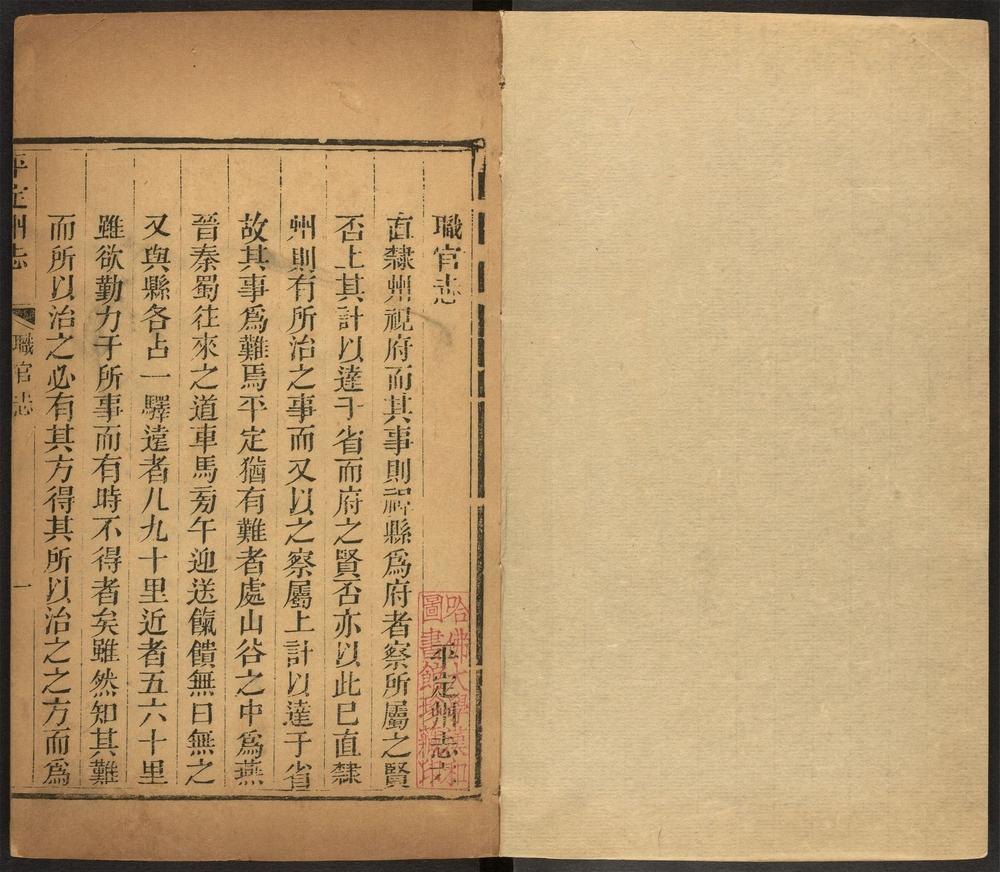 職官志 平定州志六
直隸州視府而其事則視縣爲府者察所屬之賢
否上其計以達于省而府之賢否亦以此巳直隸
州則有所治之事而又以之察屬上計以達于省
故其事爲難焉平定猶有難者處山谷之中爲燕
晉秦蜀往來之道車馬旁午迎送餼饋無日無之
又與縣各占一驛遠者八九十里近者五六十里
雖欲勤力于所事而有時不得者矣雖然知其難
而所以治之必有其方得其所以治之之方而爲
平定州志 職官志 一
哈佛大學漢和
圖書館珍藏印